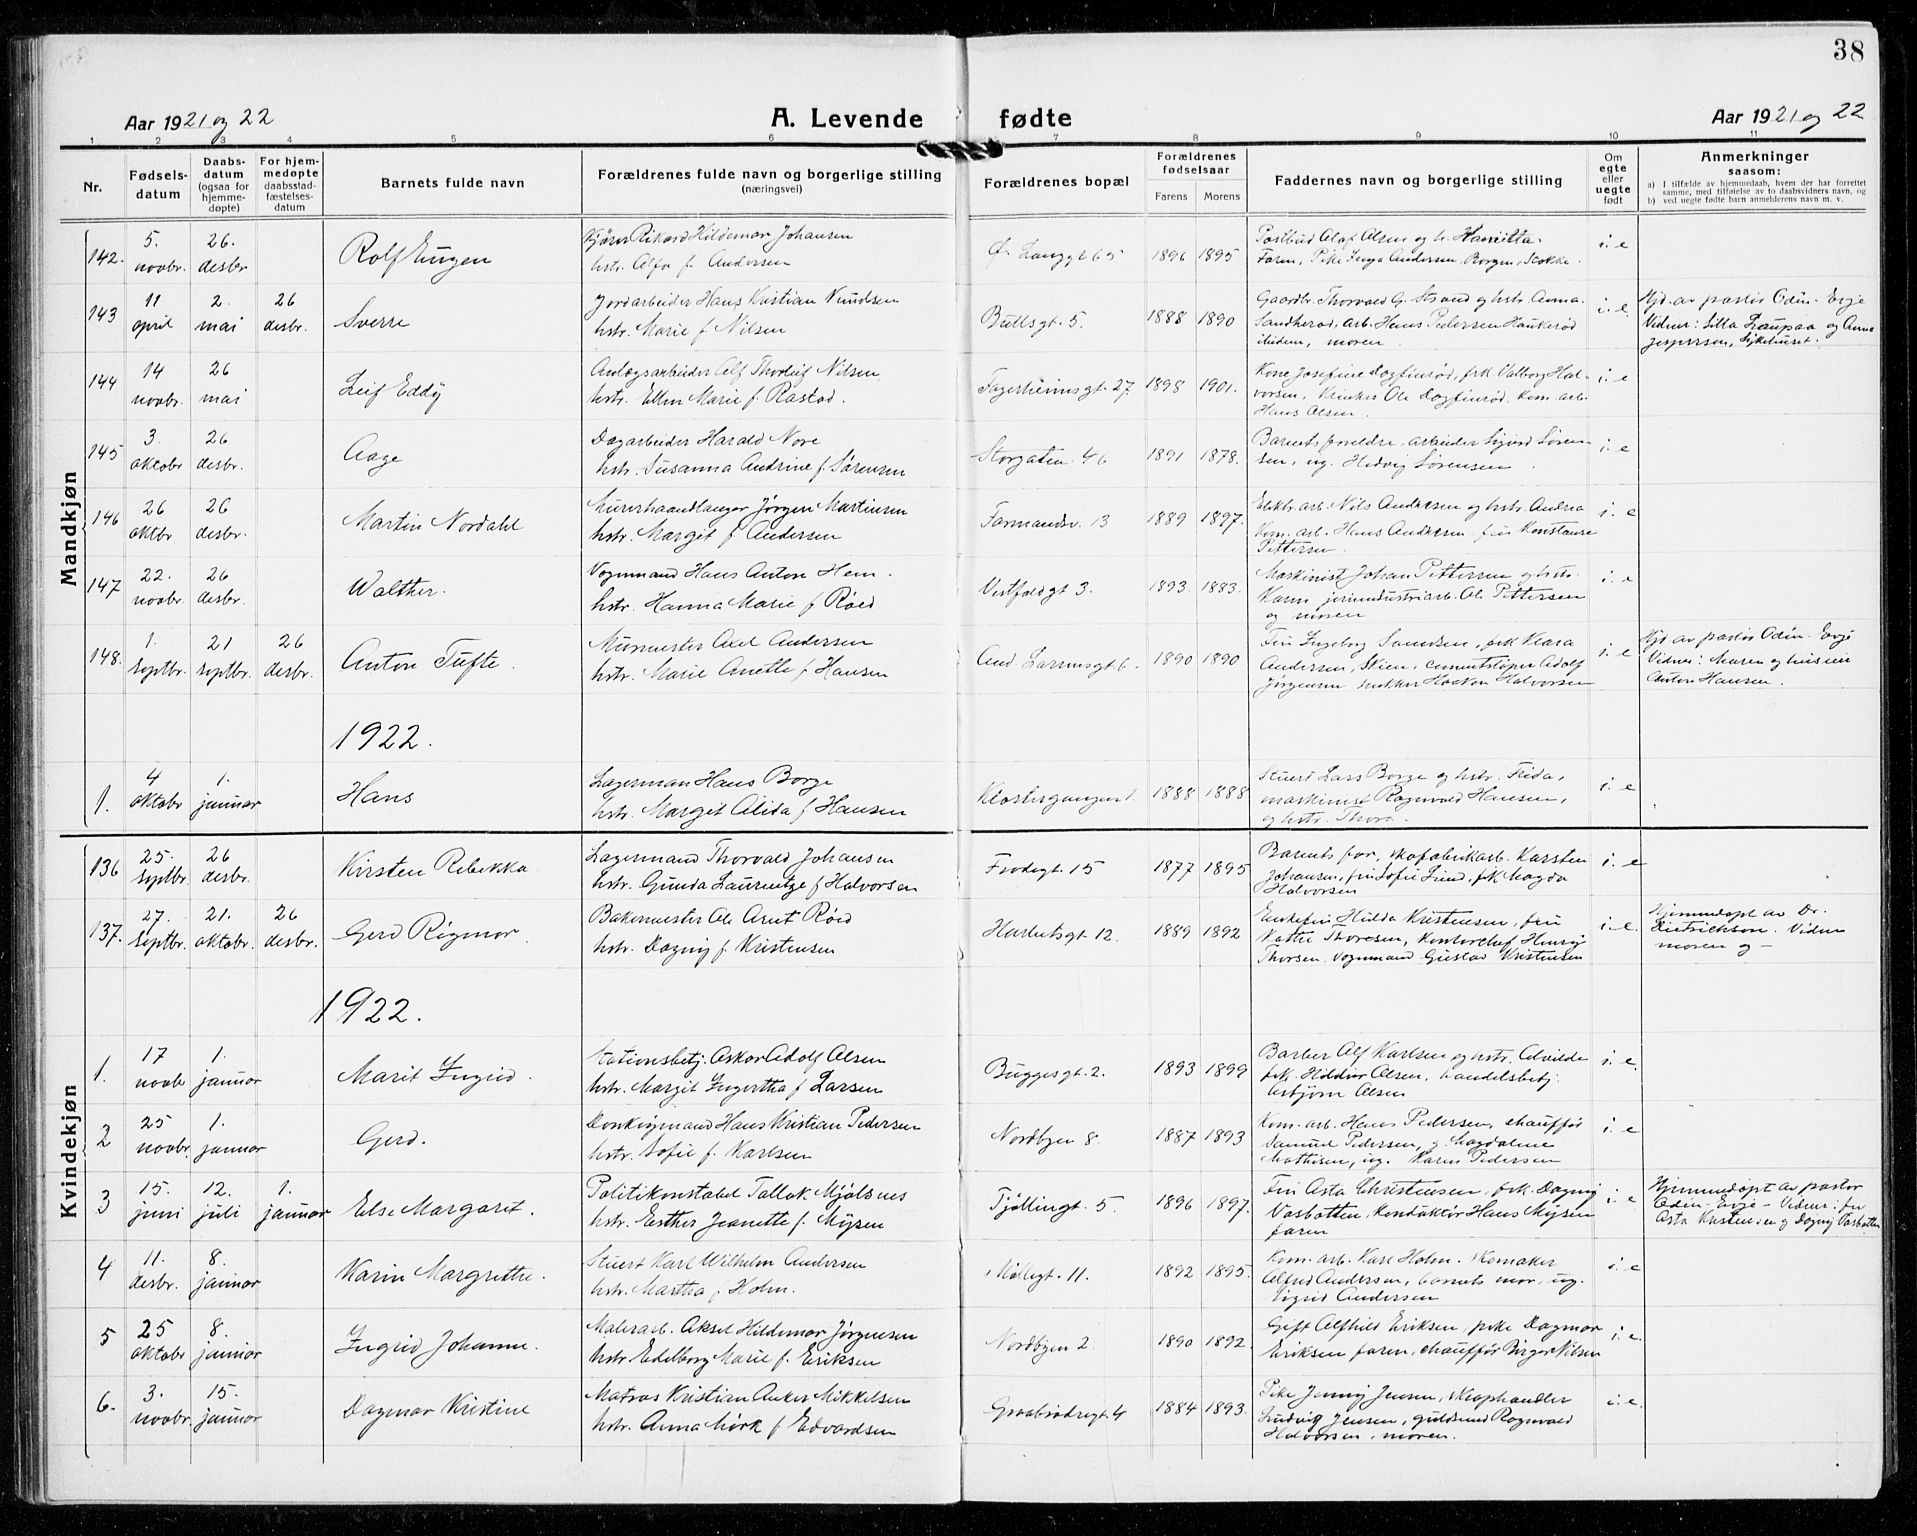 38
Aar 1921 og 22
A. Levende fødte
Aar 1921 og 22
1 2 3 4 5 6 7 8 9 10 11
Nr.
Fødsels-
datum
Daabs-
datum
(ogsaa for
hjemme-
døpte)
For hjem-
medøpte
daabsstad-
fæstelses-
datum
Barnets fulde navn
Forældrenes fulde navn og borgerlige stilling
(næringsvei)
Forældrenes bopæl
Forældrenes
fødselsaar
Farens Morens
Faddernes navn og borgerlige stilling
Om
egte
eller
uegte
født
Anmerkninger
saasom:
a) I tilfælde av hjemmedaab, hvem der har forrettet
samme, med tilføielse av to daabsvidners navn, og
b) ved uegte fødte barn anmelderens navn m. v.
Mandkjøn
142. 5. novbr. 26. desbr
Rolf Eugen
Kjører Rikard Hildemar Johansen
hstr. Alfa f. Andersen
Ø. Langgt 65 1896 1895
Postbud Olaf Olsen og h. Henritta.
Faren, Pike Inga Andersen, Borgen, Stokke.
i. e
143 11 april 2. mai 26 desbr.
Sverre
Jordarbeider Hans Kristian Knudsen
hstr. Marie f Nilsen
Bullsgt. 5. 1888 1890
Gaardbr. Thorvald G. Strand og hstr. Anna
Sandherød, arb. Hans Pedersen Haukerød
ibidem, moren
i. e
Hjd. av pastor Odén-Evje
Vidner: Silla Laupaa og Anna
Jespersen, Sykehuset.
144 14 novbr. 26 mai
Leif Eddy
Anlægsarbeider Alf Thorleif Nilsen
hstr. Ellen Marie f. Råstad.
Fagerheimsgt. 27. 1898 1901.
Kone Josefine Dagfinrød, frk. Valborg Hal-
vorsen, Ole Dagfinrød, Kom. arb.
Hans Olsen.
i. e
145 3. oktobr 26 desbr.
Aage
Dagarbeider Harald Nore
hstr. Susanna Andrine f Sørensen
Storgaten. 46 1891 1878.
Barnets foreldre, arbeider Sigurd Søren-
sen, ug. Hedvig Sørensen
i. e
146 26 oktbr 26 desbr.
Martin Nordahl
Murerhaandlanger Jørgen Martinsen
hstr. Margit f Andersen
Farmandsv. 13 1889 1897.
Elektr. arb. Nils Andersen og hstr. Andrea
Kom. arb. Hans Andersen fru Konstanse
Pettersen
i. e
147 22. novbr. 26 desbr.
Walther.
Vognmand Hans Anton Hem.
hstr. Hanna Marie f Røed
Vestfoldgt 3. 1893 1883.
Maskinist Johan Pettersen og hstr.
Karen jernindustriarb. Ole Pettersen
og moren
i. e
148. 1. septbr. 21 septbr. 26 desbr.
Anton Tufte.
Murmester Axel Andersen
hstr. Marie Anette f Hansen
And. Larsensgt 6 1890 1890
Fru Ingeborg Samdsen, frk Klara
Andersen, Skien, cementstøper Adolf
Jørgensen snekker Haakon Halvorsen
i. e
Hjd av pastor Odén-Evje
Vidner: Maren og husier
Anton Hansen.
1922.
1. 4 oktobr 1. januar
Hans
Lagerman Hans Borge
hstr. Margit Alida f Hansen
Klostergangen 1. 1888 1888
Stuert Lars Borge og hstr. Frida,
maskinist Ragnvald Hansen,
og hstr. Thora.
i. e
Kvindekjøn
136 25. septbr. 26 desbr.
Kirsten Rebekka.
Lagermand Thorvald Johansen
hstr. Gunda Laurentze f Halvorsen
Frodegt 15 1877 1895
Barnets far, skofabrikarb. Karsten
Johansen, fru Sofie Lund, frk Magda
Halvorsen
i. e
137. 27. septbr. 21. oktobr. 26 desbr.
Gerd Rigmor.
Bakermester Ole Arnt Røed
hstr. Dagny f Kristensen
Haraldsgt 12. 1889 1892
Enkefru Hulda Kristensen, fru
Kathe Thoresen, Kontorchef Henry
Thorsen. Vognmand Gustav Kristensen
i. e.
Hjemmedøpt av Dr.
Dietrichson. Vidner
moren og —
1922.
1. 17 novbr 1. januar
Marit Ingrid.
Stationsbetj. Askar Adolf Olsen
hstr. Margit Ingertha f Larsen
Buggesgt. 2. 1893 1899
Barber Alf Karlsen og hstr. Alvilde
frk. Hilldior Olsen, handelsbetj.
Asbjørn Olsen
i. e
2 25 novbr. 1. januar
Gerd.
Donkeymand Hans Kristian Pedersen
hstr. Sofie f. Karlsen
Nordbyen 8. 1887 1893
Kom. arb. Hans Pedersen, chauffør
Samuel Pedersen, g. Magdalene
Mathisen, ug. Karen Pedersen
i. e
3 15. juni 12. juli 1. januar
Else Margaret.
Politikonstabel Tallak Mjølsnes
hstr. Esther Jeanette f. Mysen
Tjøllingt. 5. 1896 1897.
Fru Asta Christensen, frk. Dagny
Vasbotten, Konduktør Hans Mysen
faren
i. e
Hjemmedøpt av pastor
Odén-Evje - Vidner: fru
Asta Kristensen og Dagny Vasbotten
4 11. desbr. 8. januar
Karin Margrethe.
Stuert Karl Wilhelm Andersen
hstr. Martha f Holm.
Møllegt. 11. 1892 1895.
Kom. arb. Karl Holm. Skomaker
Alfred Andersen, barnets mor, ug.
Sigrid Andersen
i. e
5 25 oktobr 8. januar
Ingrid Johanne.
Malerarb. Aksel Hildemar Jørgensen
hstr Edelborg Marie f. Eriksen
Nordbyen 2. 1890 1892.
Gift Alfhild Eriksen, pike Dagmar
Eriksen faren, chauffør Birger Nilsen
i. e.
6. 3. novbr. 15. januar
Dagmar Kristine
Matros Kristian Anker Mikkelsen
hstr. Anna Mørk f Edvardsen
Graabrødregt. 4 1884 1893.
Pike Jenny Jensen, Skraphandler
Ludvig Jensen, guldsmed Ragnvald
Halvorsen, moren.
i. e.